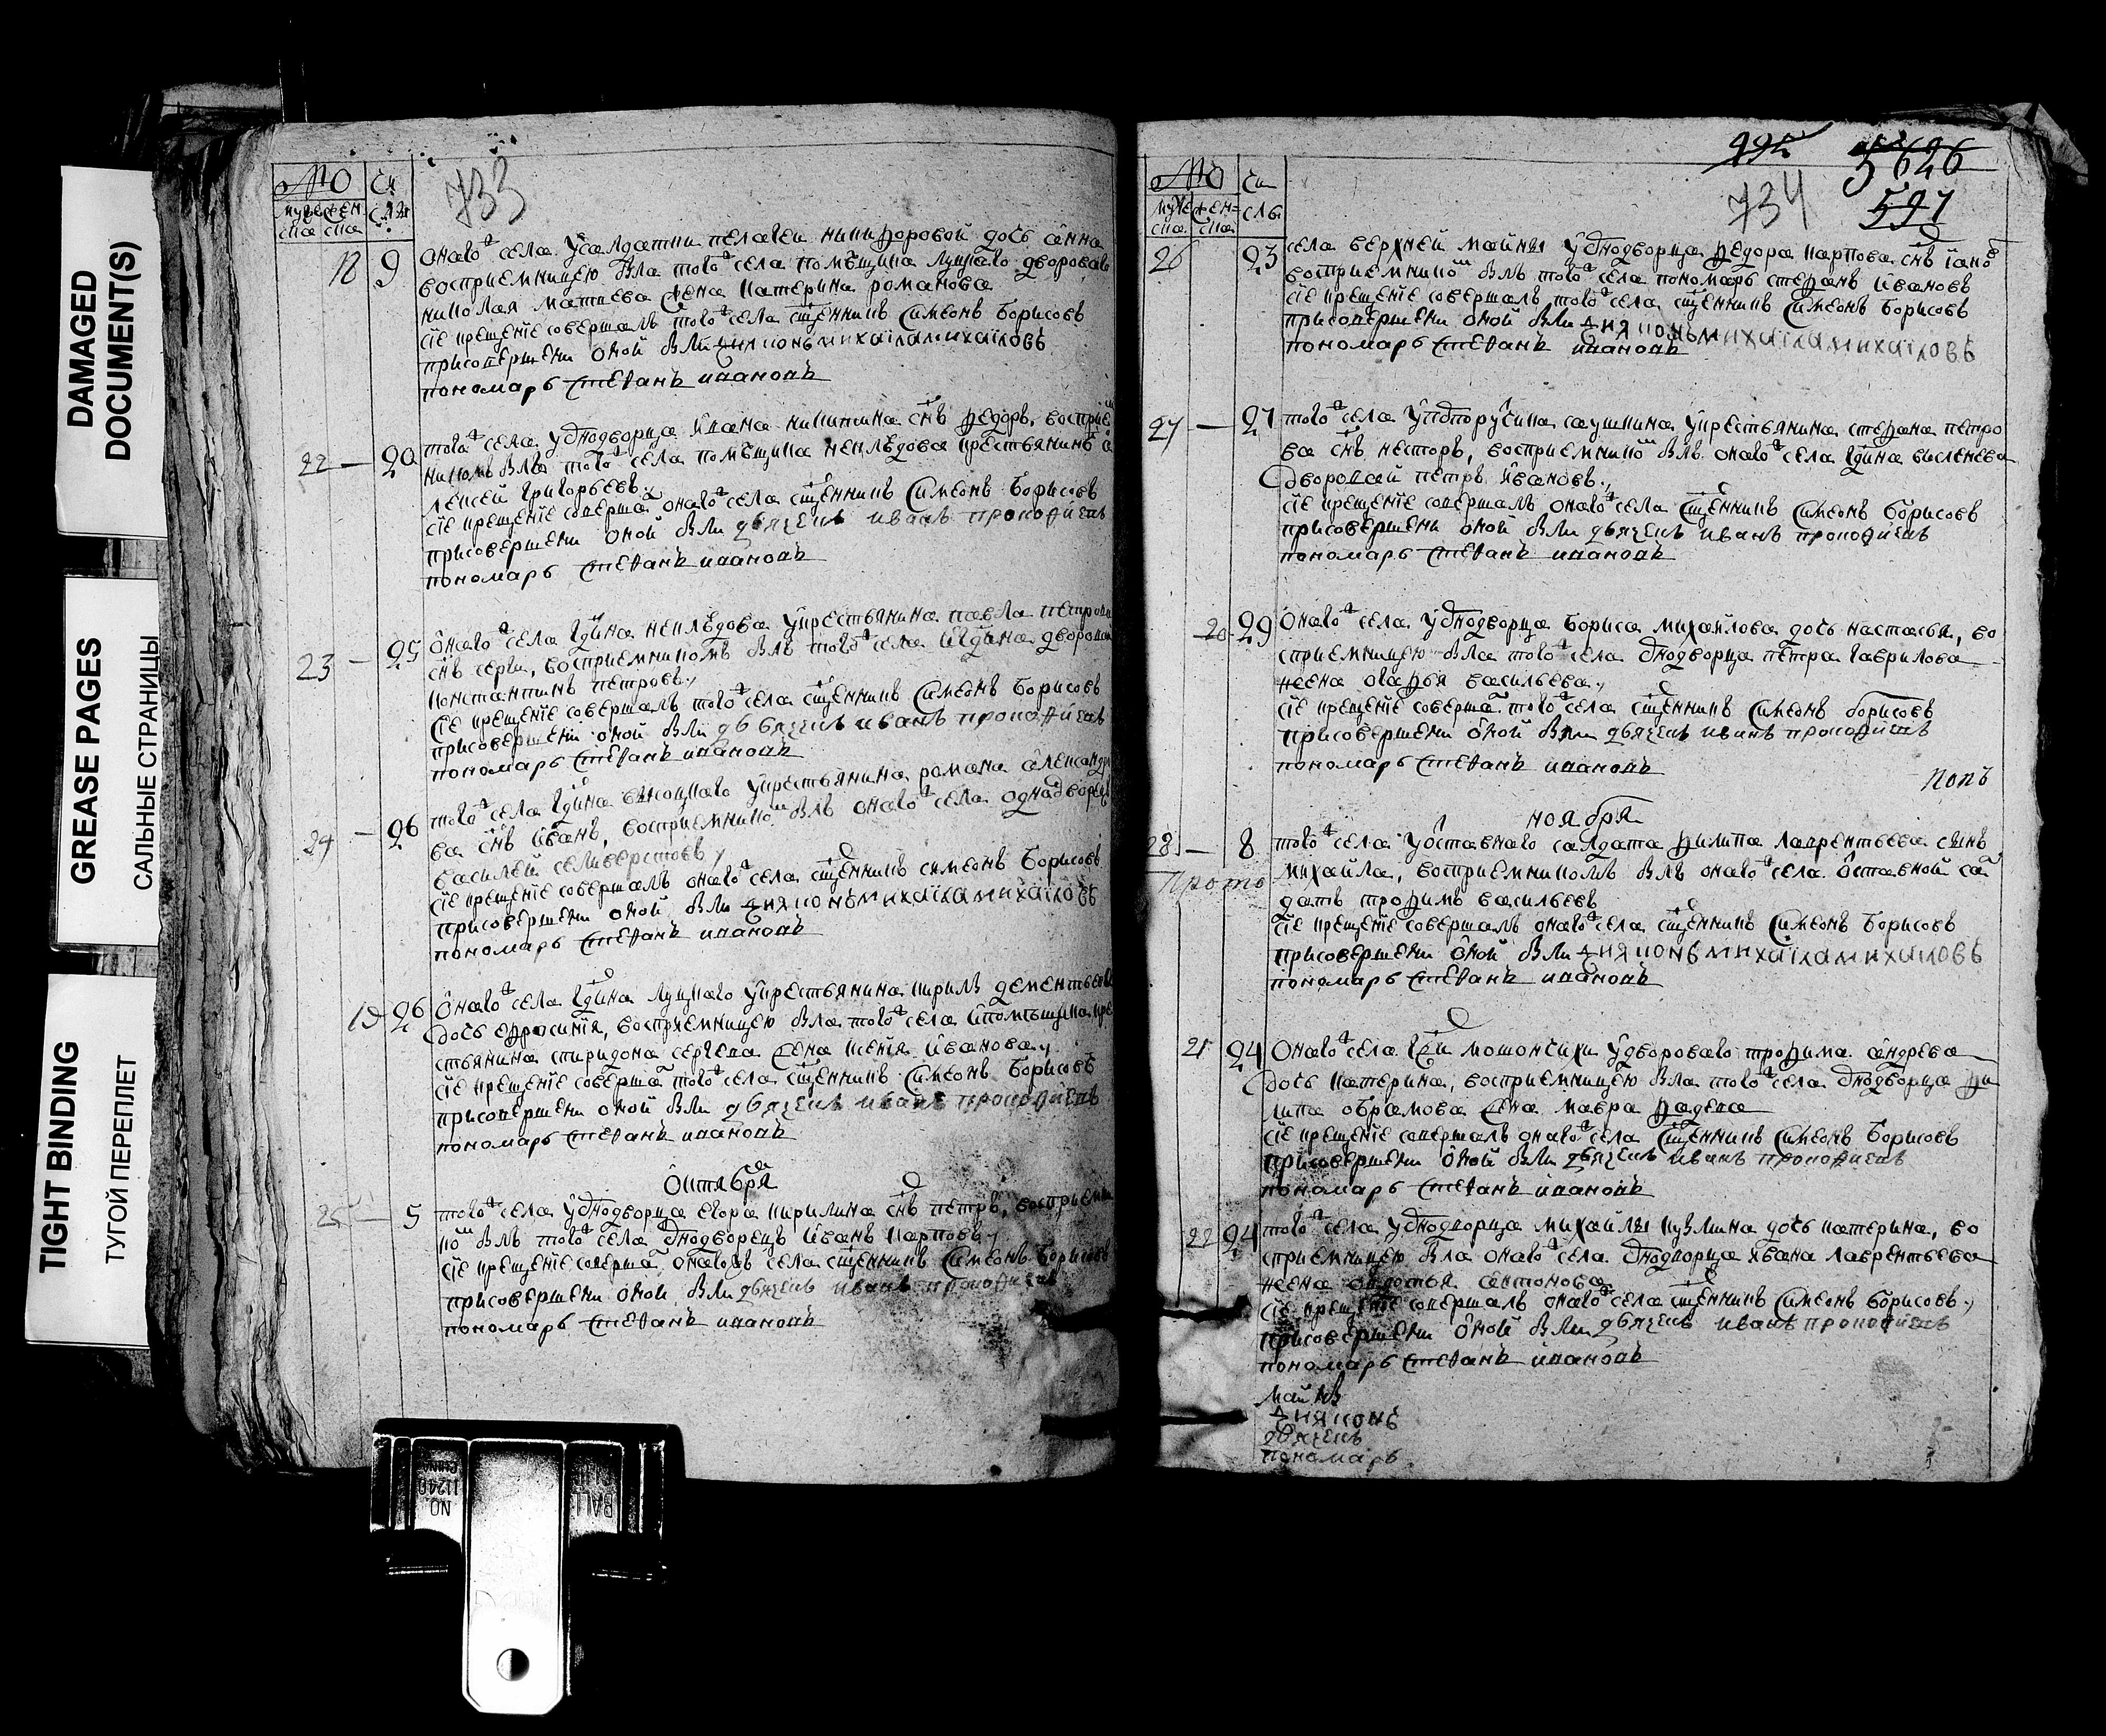 DAMAGED
DOCUMENT(S)
GREASE PAGES
САЛЬНЫЕ СТРАНИЦЫ
TIGHT BINDING
ТУГОЙ ПЕРЕПЛЕТ
733
18 9 онаго села у салдатки пелагеи никифоровой дочь анна
восприемницею была того села помещика луцкаго двороваго
николая матвеева жена катерина романова
сіе крещеніе совершалъ того села сщенникъ Симеонъ Борисовъ
присовершени оной были диаконъ михаіла михаіловъ
пономарь Стеѳанъ ивановъ
22 20 того села у однодворца ивана никитина снъ федоръ, восприе
никомъ былъ того села помещика неклюдова крестьянинъ а
лексей григорьевъ
сіе крещеніе соверша онаго села сщенникъ Симеонъ Борисовъ
присовершени оной были дьячекъ иванъ прокофиевъ
пономарь Стеѳанъ ивановъ
23 25 онаго села гдина неклюдова у крестьянина павла петрова
снъ серги, восприемникомъ былъ того села гдина дворовой
константинъ петровъ
сіе крещеніе совершалъ того села сщенникъ Симеонъ Борисовъ
присовершени оной были дьячекъ иванъ прокофиевъ
пономарь Стеѳанъ ивановъ
24 26 того села гдина у крестьянина романа александро
ва снъ иванъ, восприемнико былъ онаго села однодворецъ
василей селиверстовъ
сіе крещеніе совершалъ онаго села сщенникъ симеонъ Борисовъ
присовершени оной были диаконъ михаіла михаіловъ
пономарь Стеѳанъ ивановъ
19 26 онаго села гдина луцкаго у крестьянина кирилы дементьева
дочь ефросиния, восприемницею была того села помещика кре
стьянина спиридона сергева жена ксения иванова
сіе крещеніе соверша того села сщенникъ Симеонъ Борисовъ
присовершени оной были дьячекъ иванъ прокофиевъ
пономарь Стеѳанъ ивановъ
октября
25 5 того села у однодворца егора кирилина снъ петръ, восприемни
ко былъ того села однодворецъ иванъ карповъ
сіе крещеніе соверша онаго села сщенникъ Симеонъ Борисовъ
присовершени оной были дьячекъ иванъ прокофиевъ
пономарь Стеѳанъ ивановъ
5626
734 591
26 23 села верхней майны у однодворца федора карпова снъ іако
восприемнико былъ того села пономарь стефанъ ивановъ
сіе крещеніе совершалъ того села сщенникъ Симеонъ Борисовъ
присовершени оной были диаконъ михаіла михаіловъ
пономарь Стеѳанъ ивановъ
27 27 того села у крестьянина стефана петро
ва снъ несторъ, восприемнико былъ онаго села гдина
дворовой петръ ивановъ
сіе крещеніе совершалъ онаго села сщенникъ Симеонъ Борисовъ
присовершени оной были дьячекъ иванъ прокофиевъ
пономарь Стеѳанъ ивановъ
20 29 онаго села у однодворца бориса михайлова дочь настасья, во
сприемницею была того села однодворца петра гаврилова
жена васильева
сіе крещеніе соверша того села сщенникъ Симеонъ борисовъ
присовершени оной были дьячекъ иванъ прокофиевъ
пономарь Стеѳанъ ивановъ
попъ
ноября
28 8 того села у оставнаго салдата филипа лаврентьева сынъ
михайла, восприемникомъ былъ онаго села оставной сал
датъ трофимъ васильевъ
сіе крещеніе совершалъ онаго села сщенникъ Симеонъ Борисовъ
присовершени оной были диаконъ михаіла михаиловъ
пономарь Стеѳанъ ивановъ
Прото
21 24 онаго села у двороваго трофима андрева
дочь катерина, восприемницею была того села однодворца фи
липа обрамова жена мавра
сіе крещеніе совершалъ онаго села сщенникъ Симеонъ Борисовъ
присовершени оной были дьячекъ иванъ прокофиевъ
пономарь Стеѳанъ ивановъ
22 24 того села у однодворца михайлы кузмина дочь катерина, во
сприемницею была онаго села однодворца ивана лаврентьева
жена антонова
сіе крещеніе совершалъ онаго села сщенникъ Симеонъ Борисовъ
присовершени оной были дьячекъ иванъ прокофиевъ
пономарь Стеѳанъ ивановъ
диаконъ
дьячекъ
пономарь